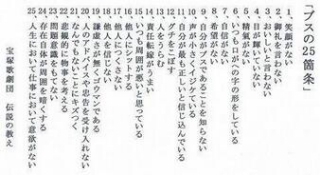 「ブスの25箇条」
1 笑顔がない
2 お礼を言わない
3 おいしいと言わない
4 目が輝いていない
5 精気がない
6 いつも口がへの字の形をしている
7 自信がない
8 希望がない
9 自分がブスであることを知らない
10 声が小さくイジケている
11 自分が最も正しいと信じ込んでいる
12 グチをこぼす
13 人をうらむ
14 責任転嫁がうまい
15 いつも周囲が悪いと思っている
16 他人にシットする
17 他人につくさない
18 他人を信じない
19 謙虚さがなくゴウマンである
20 人のアドバイスや忠告を受け入れない
21 なんでもないことにキズつく
22 悲観的に物事を考える
23 問題意識をもてない
24 存在自体が周囲を暗くする
25 人生においても仕事において意欲がない
宝塚歌劇団 伝説の教え